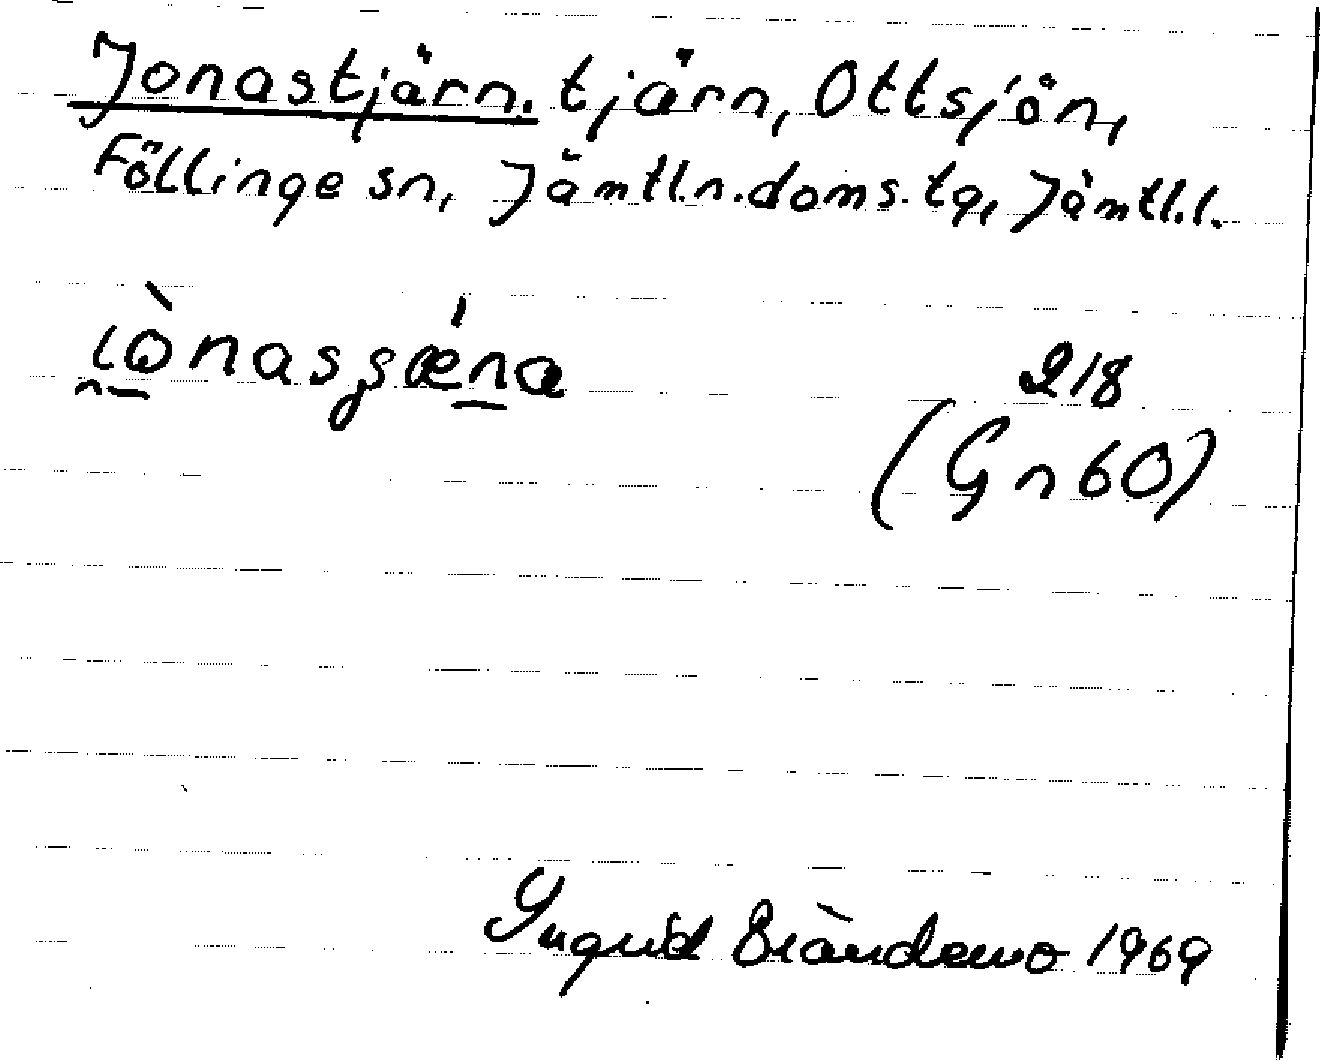 Jonastjärn. tjärn, Ottsjön,
Föllinge sn, Jämtl.n.doms.tg, Jämtl.l.
218
(Gn 60)
Ingrid 1969